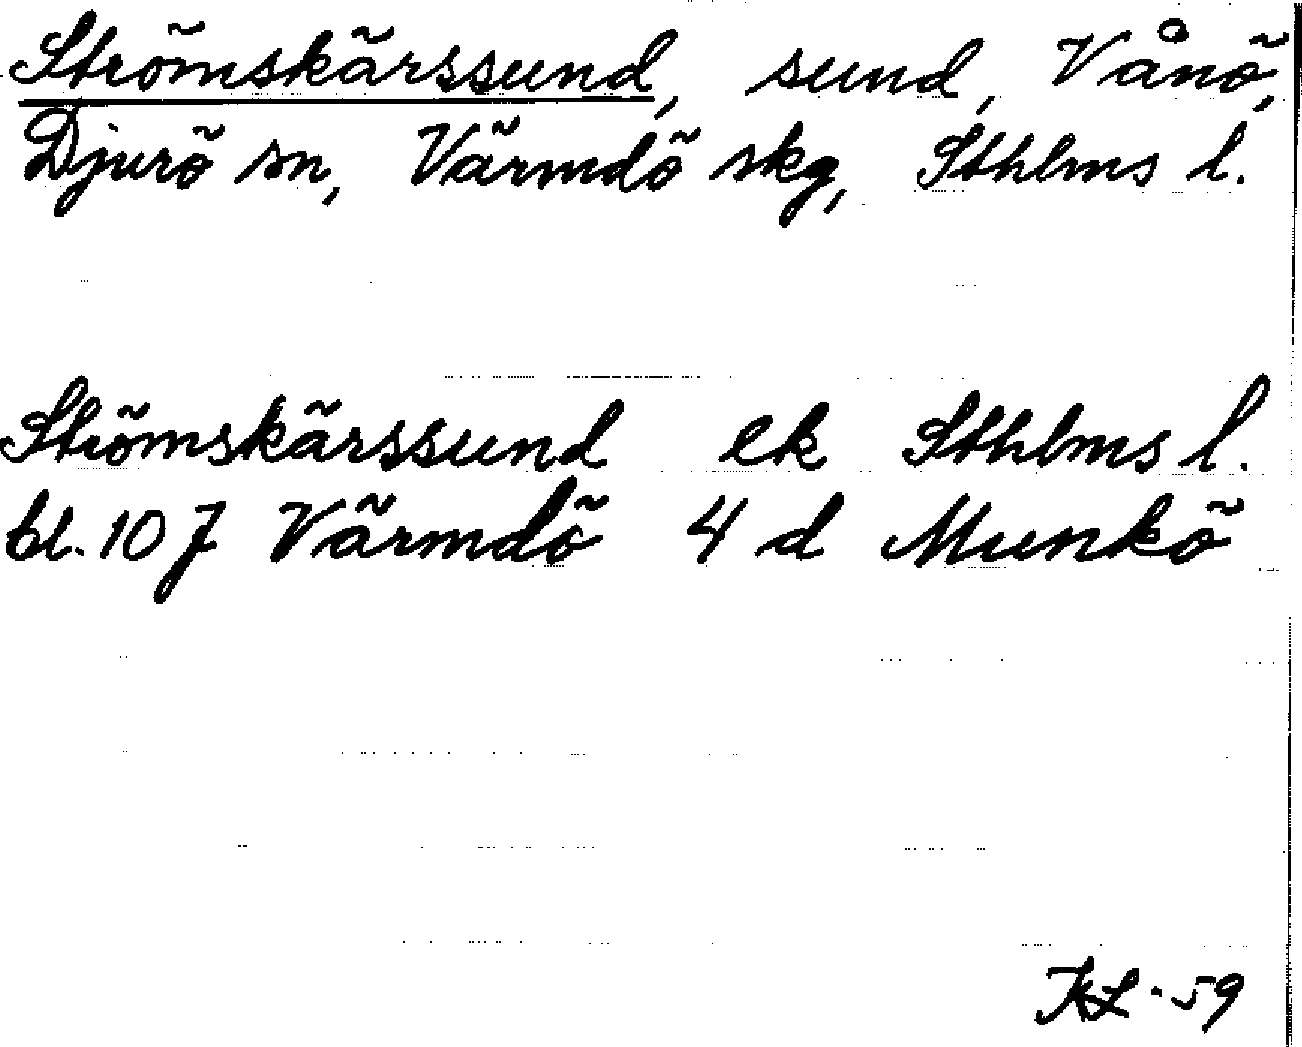 Strömskärssund, sund, Vånö,
Djurö sn, Värmdö skg, Sthlms l.
Strömskärssund ek Sthlms l.
bl. 107 Värmdö 4 d Munkö
KL-59